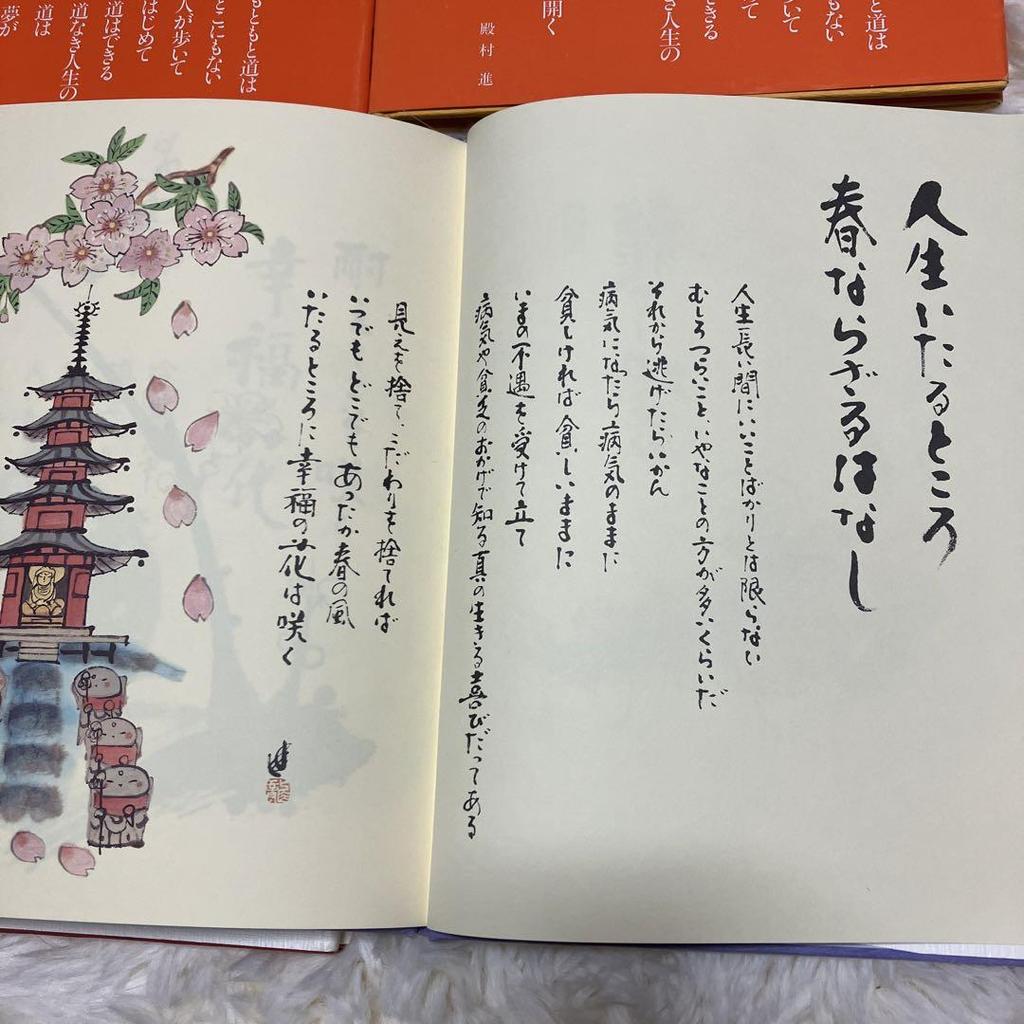 もともと道は
どこにもない
人が歩いて
はじめて
道はできる
道なき人生の
道は
夢が
と道は
もない
いて
て
できる
き人生の
開く
殿村 進
人生いたるところ
春ならざるはなし
人生長い間にいいことばかりとは限らない
むしろつらいこと、いやなことの方が多いくらいだ
それから逃げたらいかん
病気になったら病気のままに
貧しければ貧しいままに
いまの不遇を受けて立て
病気や貧乏のおかげで知る真の生きる喜びだってある
見えを捨て、こだわりを捨てれば
いつでもどこでもあったか春の風
いたるところに幸福の花は咲く
進